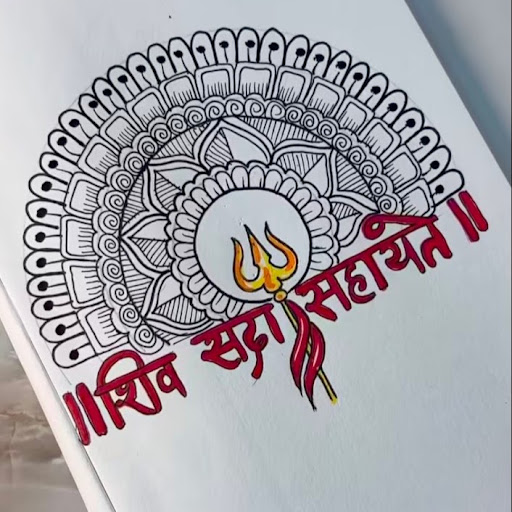 ॥शिव सदा सहायते॥